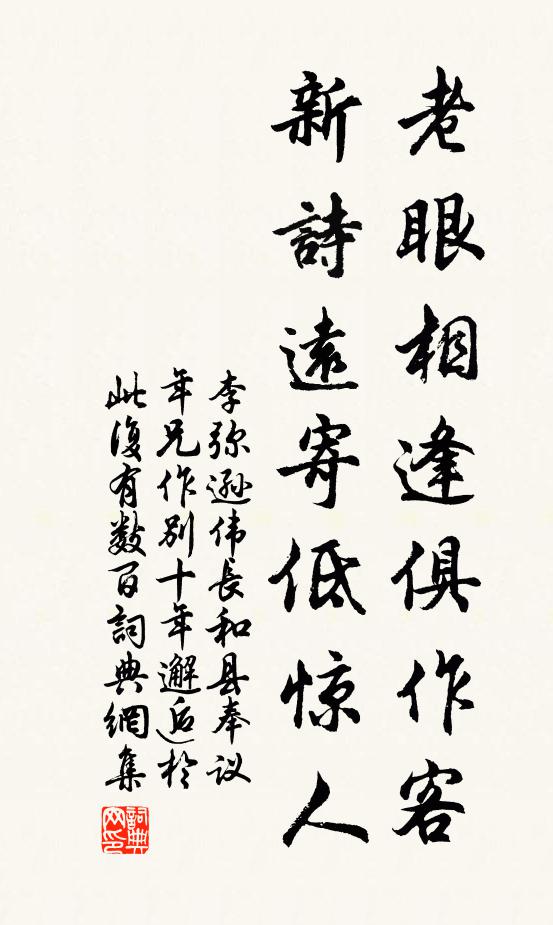 老眼相逢俱作客
新詩遠寄低惊人
李弥遜伟長和县奉议
年兄作别十年邂逅於
此復有数百詞典網集
詞典网印